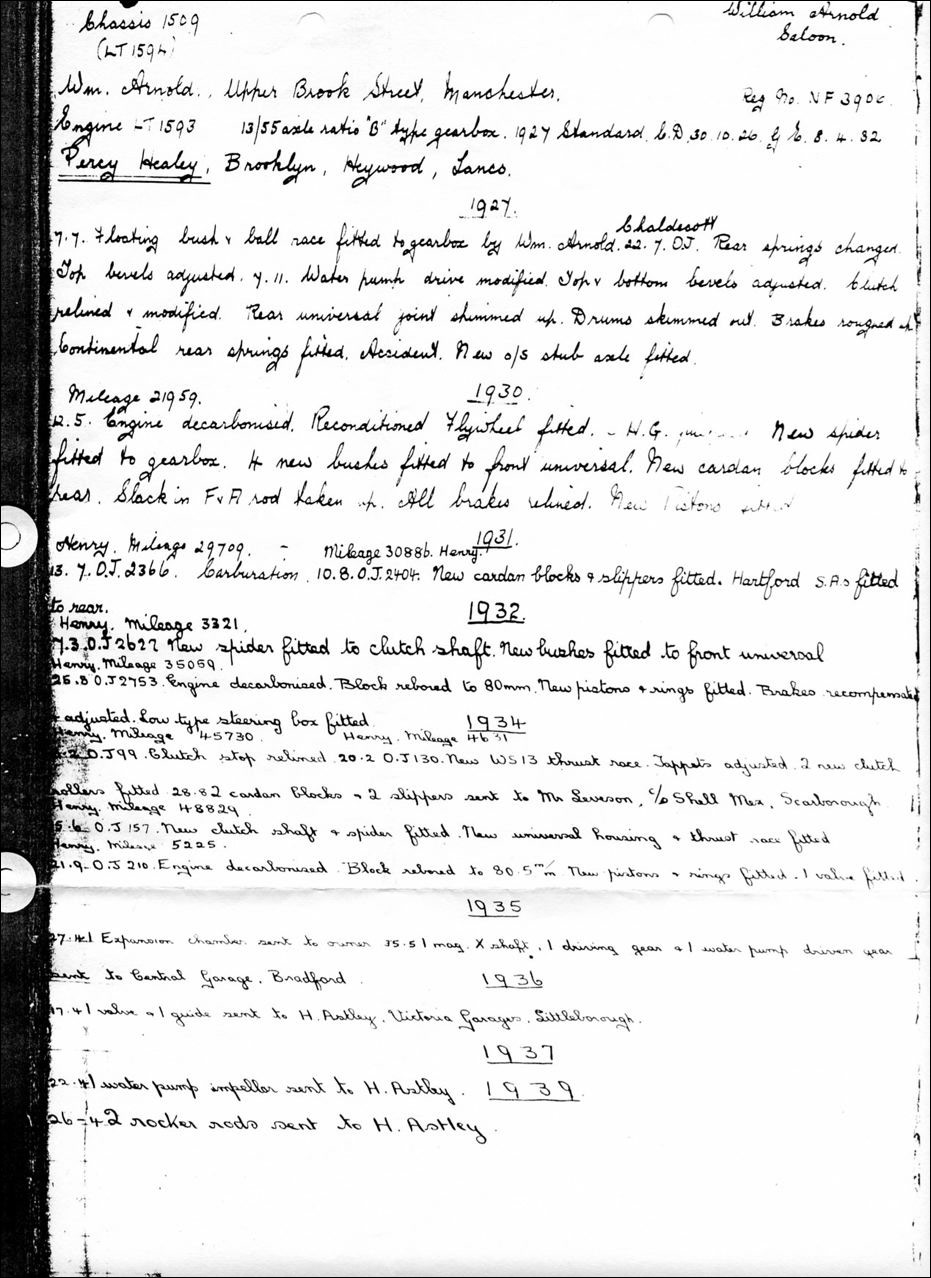 Chassis 1509
William Arnold
(LT 1594)
Saloon.
Wm. Arnold., Upper Brook Street, Manchester.
Reg No. NF 3906.
Engine LT 1593 13/55 axle ratio "B" type gearbox. 1927 Standard. C.D. 30.10.26. G E. 8.4.32
Percy Healey, Brooklyn, Heywood, Lancs.
1927.
Chaldecott
7.7. Floating bush & ball race fitted to gearbox by Wm. Arnold. 22.7. O.J. Rear springs changed.
Top bevels adjusted. 4.11. Water pump drive modified. Top & bottom bevels adjusted. Clutch
relined & modified. Rear universal joint shimmed up. Drums skimmed out. Brakes rougned
Continental rear springs fitted. Accident. New o/s stub axle fitted.
Mileage 21959.
1930.
12.5. Engine decarbonised. Reconditioned Flywheel fitted. - H.G. New spider
fitted to gearbox. 4 new bushes fitted to front universal. New cardan blocks fitted to
rear. Slack in F & A rod taken up. All brakes relined. New Pistons fitted
1931.
Henry. Mileage 29709. - Mileage 30886. Henry.
13. 7. O.J. 2366. Carburation. 10.8. O.J. 2404. New cardan blocks & slippers fitted. Hartford S.A.s fitted
to rear.
1932.
Henry. Mileage 3321.
7.3. O.J 2627 New spider fitted to clutch shaft. New bushes fitted to front universal
Henry. Mileage 35059.
25.8 O.J 2753. Engine decarbonised. Block rebored to 80mm. New pistons & rings fitted. Brakes recompensated
& adjusted. Low type steering box fitted.
1934
Henry. Mileage 45730. Henry. Mileage 4631
.2 O.J 99. Clutch stop relined. 20.2 O.J 130. New WS13 thrust race. Tappets adjusted. 2 new clutch
rollers fitted 28.8 2 cardan blocks & 2 slippers sent to Mr Leveson, c/o Shell Mex, Scarborough.
Henry. Mileage 48829
5.6. O.J 157. New clutch shaft & spider fitted. New universal housing & thrust race fitted
Henry. Mileage 5225.
21.9. O.J 210. Engine decarbonised. Block rebored to 80.5 m/m New pistons & rings fitted. 1 valve fitted.
1935
27.4 1 Expansion chamber sent to owner 15.5 1 mag. X shaft, 1 driving gear & 1 water pump driven gear
sent to Central Garage, Bradford.
1936
17.4 1 valve & 1 guide sent to H. Astley, Victoria Garages, Littleborough.
1937
22.4 1 water pump impellor sent to H. Astley.
1939.
26-4 2 rocker rods sent to H. Astley.